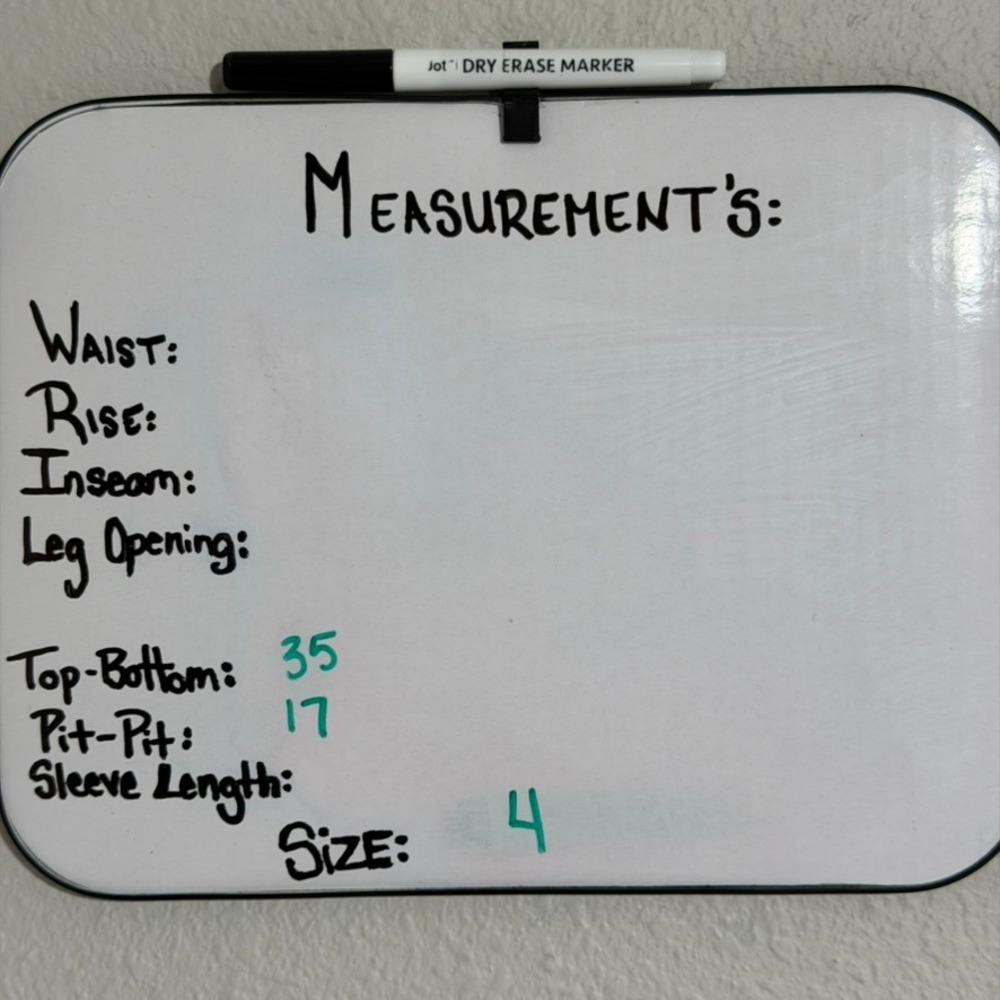 Jot™ DRY ERASE MARKER
MEASUREMENT'S:
WAIST:
RISE:
Inseam:
Leg Opening:
Top-Bottom: 35
Pit-Pit: 17
Sleeve Length:
SiZE: 4